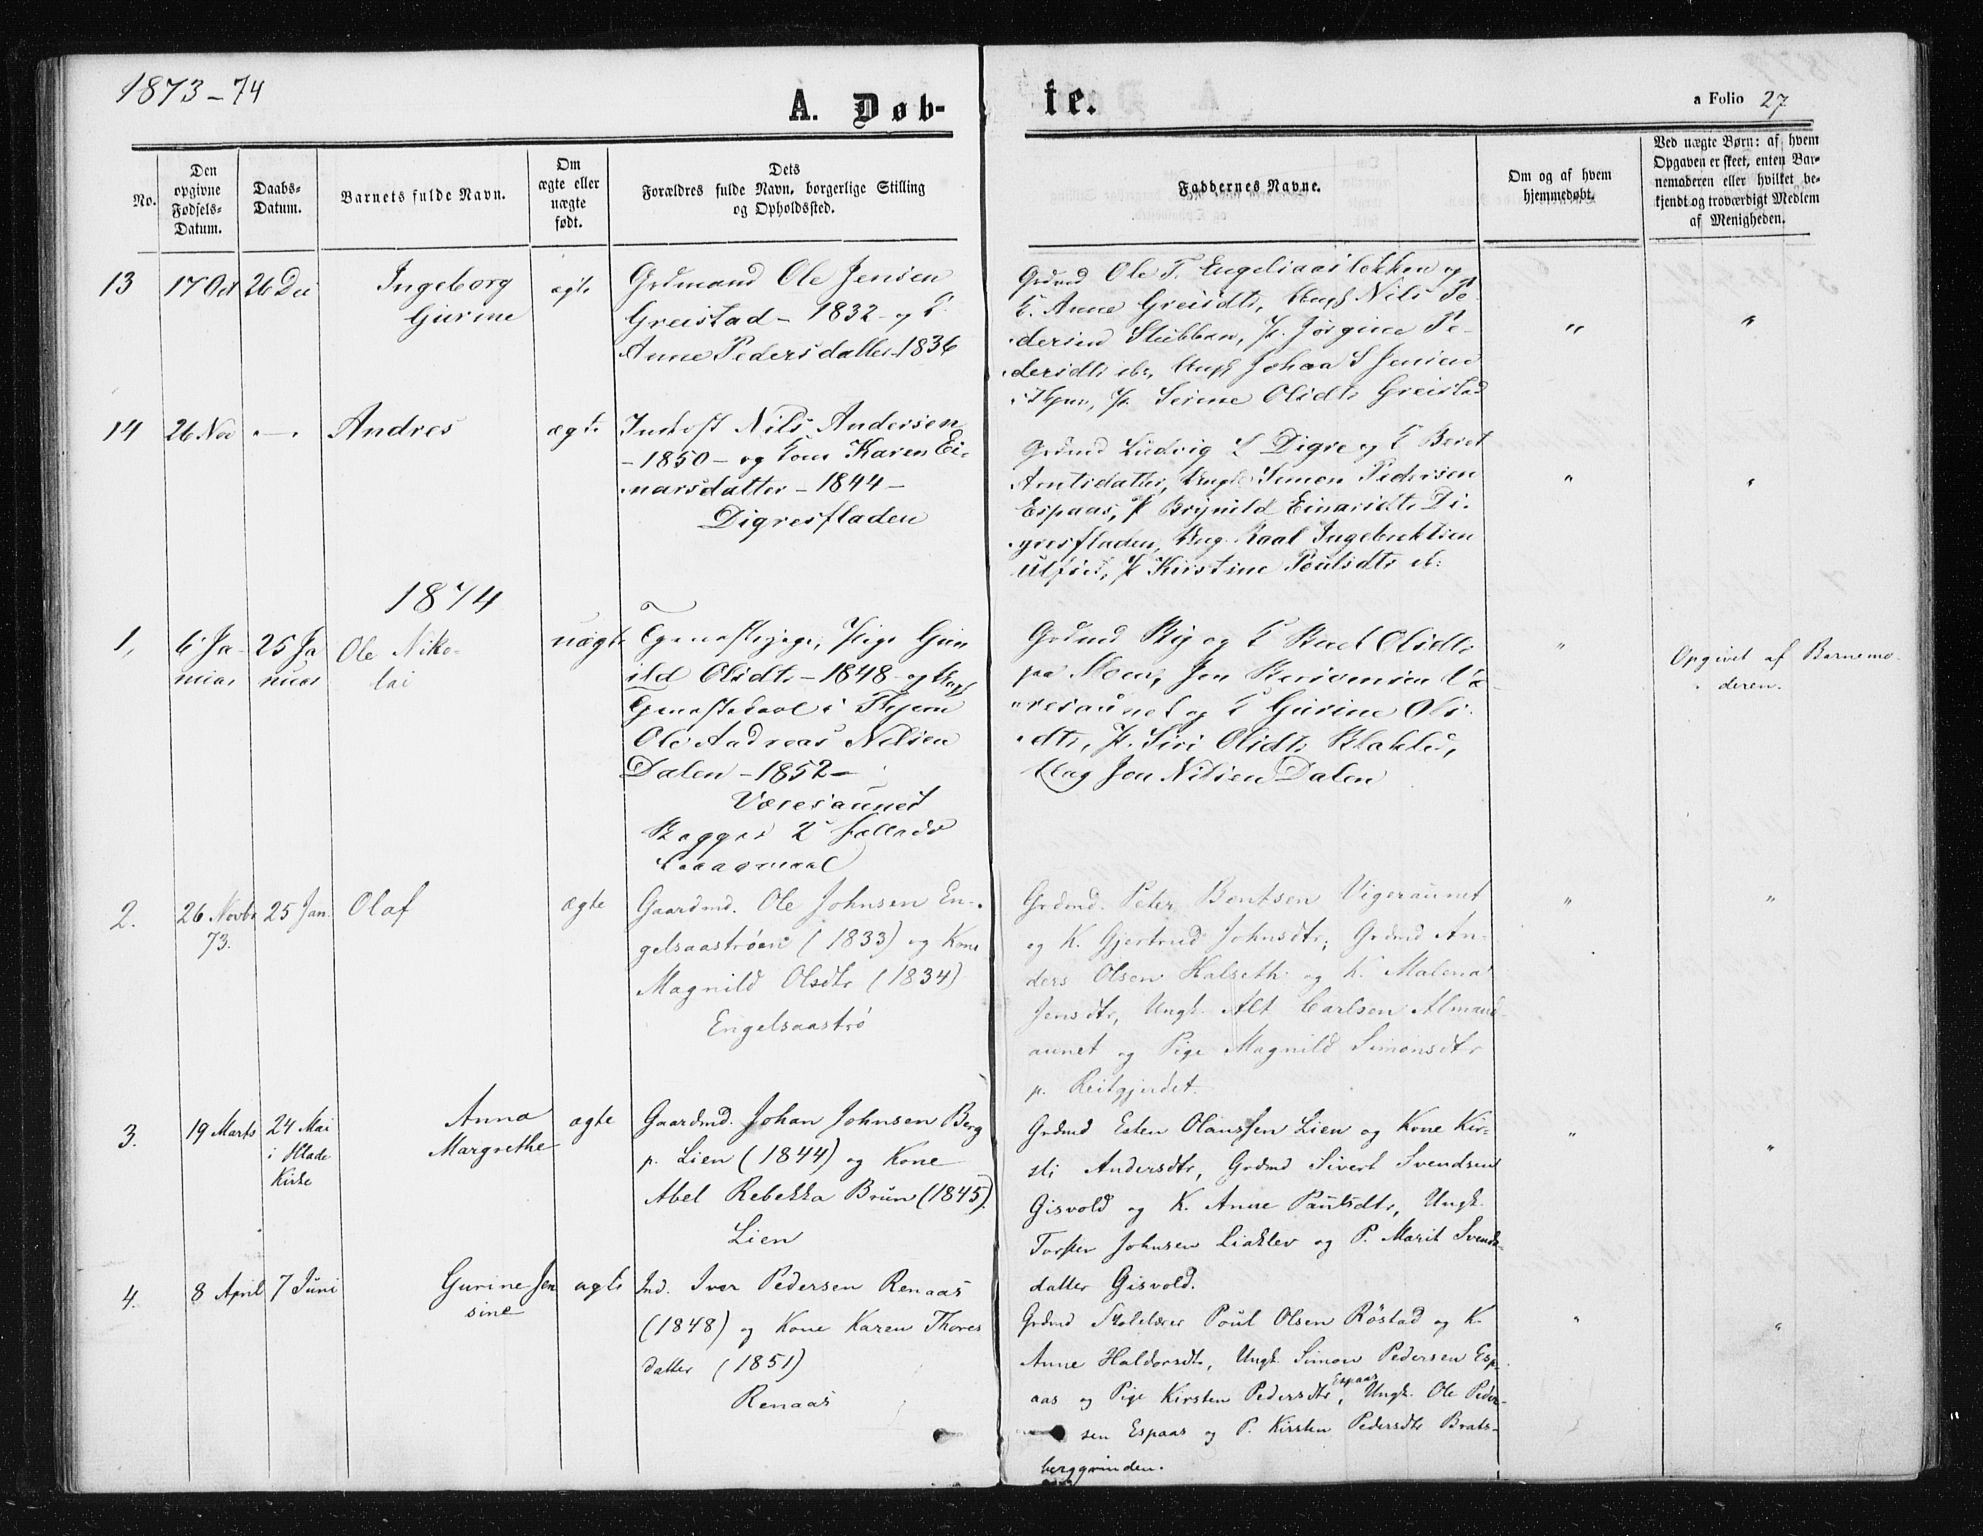 1873-74
A. Døb-
te.
a Folio 27
No.
Den
opgivne
Fødsels-
Datum.
Daabs-
Datum.
Barnets fulde Navn.
Om
ægte eller
uægte
født.
Dets
Forældres fulde Navn, borgerlige Stilling
og Opholdssted.
Faddernes Navne.
Om og af hvem
hjemmedøbt.
Ved uægte Børn: af hvem
Opgaven er skeet, enten Bar-
nemoderen eller hvilket be-
kjendt og troværdigt Medlem
af Menigheden.
13 17 Oct 26 Dec Ingeborg
Gurine
ægte
Grdmand Ole Jensen
Greistad - 1832 - og
Anne Pedersdatter 1836
Grdmd Ole T. Engelsaasløkken og
Anne Greisdtr, Ungk Nils Pe-
dersen Stubban, P. Jørgine Pe-
dersdtr ibr, Ungk Johan S Jensen
P. Serine Olsdtr Greistad
" "
14 26 Nov -"- Andres
ægte
Inderst Nils Andersen
- 1850 - og Kone Karen Ei-
narsdatter - 1844 -
Digresfladen
Grdmd Ludvig L Digre og Beret
Arntsdatter, Ungk Simon Pedersen
Espaas, P Brynild Einarsdtr Di-
gresfladen, Ung Ingebriktsen
P Kirstine Poulsdtr ib:
" "
1874
1, 6 Ja-
nuar
25 Ja
nuar
Ole Niko-
lai
uægte
Pige Gun
ild Olsdtr - 1848 - og Ungk
i
Ole Andreas Nilsen
Dalen - 1852 -
Væresaunet
Begges 2
Grdmd og Beret Olsdtr
paa Moen, Jon
resaunet og Gurine Ols
dtr, P. Siri Olsdtr
Ung Jon Nilsen Dalen
"
Opgivet af Barnemo-
deren.
2. 26 Novbr
73.
25 Jan. Olaf
ægte
Gaardmd. Ole Johnsen En-
gelsaastrøen (1833) og Kone
Magnild Olsdtr (1834)
Engelsaastrø
Grdmd. Peter Bentsen Vigeraunet
og K. Gjertrud Johnsdtr, Grdmd An-
ders Olsen Halseth og K. Malena
Jensdtr, Ungk. Alt Carlsen
aunet og Pige Magnild Simonsdtr
p. Reitgjerdet.
" "
3. 19 Marts 24 Mai
i Hlade
Kirke
Anna
Margrethe
ægte
Gaardmd. Johan Johnsen Berg
p. Lien (1844) og Kone
Abel Rebekka Brun (1845).
Lien
Grdmd Esten Olaussen Lien og Kone Kir-
sti Andersdtr, Grdmd Sivert Svendsen
Gisvold og K. Anne Paulsdtr, Ungk.
Torsten Johnsen Liaklev og P. Marit Svends-
datter Gisvold.
" "
4. 8 April 7 Juni Gurine Jen
sine
ægte
Ind. Iver Pedersen Renaas
(1848) og Kone Karen Thores
datter (1851)
Renaas
Grdmd Skolelærer Poul Olsen Røstad og K.
Anne Haldorsdtr, Ungk. Simon Pedersen Esp-
aas og Pige Kirsten Pedersdtr Espaas, Ungk. Ole Peder-
sen Espaas og P. Kirsten Pedersdtr Brats-
berggrinden.
" "